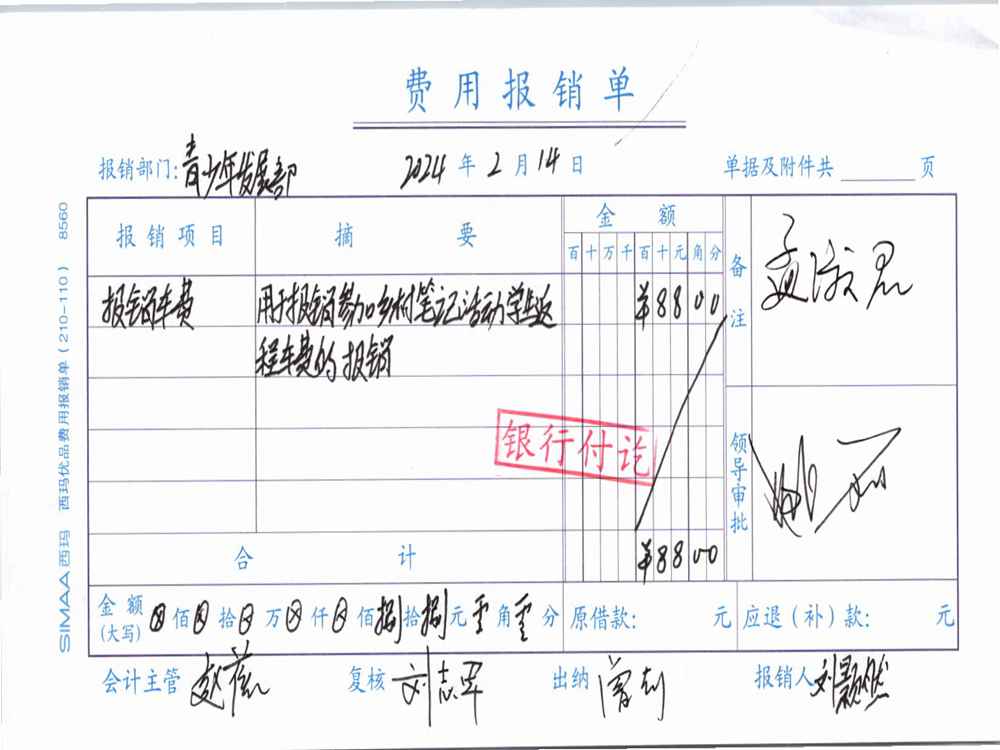 费用报销单
报销部门:青少年发展部 2024年2月14日 单据及附件共 页
报销项目 摘要 金额 备注
百十万千百十元角分
报销车费 用于报销参加乡村笔记活动学生返 ¥8800
程车费的报销
银行付讫
领导审批
合计 ¥8800
金额(大写) 佰 拾 万 仟 佰捌拾捌元零角零分 原借款: 元 应退(补)款: 元
会计主管 复核 刘志军 出纳 曾 报销人 刘颢然
SIMAA西玛 西玛优品费用报销单(210-110) 8560